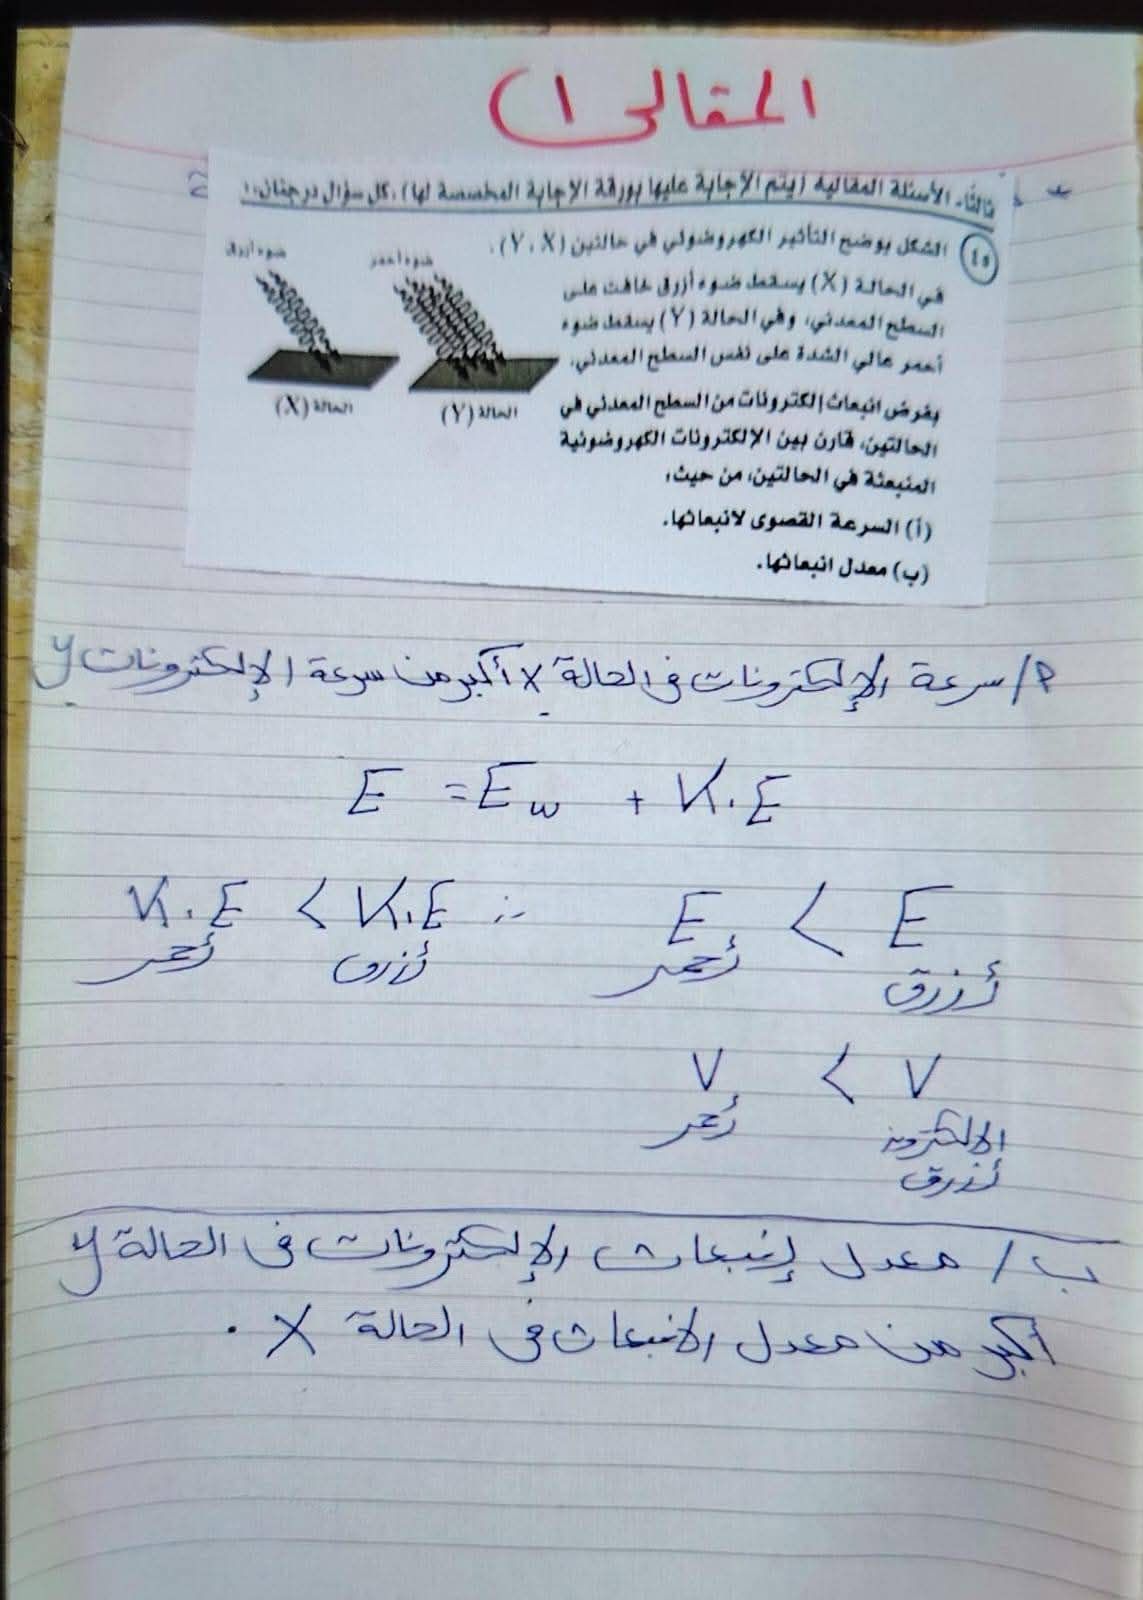 المقالى ١
ثالثًا، الأسئلة المقالية (يتم الإجابة عليها بورقة الإجابة المخصصة لها)، كل سؤال درجتان،
٤٥ الشكل يوضح التأثير الكهروضوئي في حالتين (Y ، X).
في الحالة (X) يسقط ضوء أزرق خافت على
السطح المعدني، وفي الحالة (Y) يسقط ضوء
أحمر عالي الشدة على نفس السطح المعدني.
بفرض انبعاث إلكترونات من السطح المعدني في
الحالتين، قارن بين الإلكترونات الكهروضوئية
المنبعثة في الحالتين، من حيث،
(أ) السرعة القصوى لانبعاثها.
(ب) معدل انبعاثها.
ضوء أحمر
ضوء أزرق
الحالة (Y)
الحالة (X)
P/ سرعة الإلكترونات فى الحالة X أكبر من سرعة الإلكترونات y
E = Ew + K.E
K.E < K.E ∴ E < E
أحمر أزرق أحمر أزرق
V < V
أحمر الالكترون
أزرق
ب/ معدل إنبعاث الإلكترونات فى الحالة y
أكبر من معدل الانبعاث فى الحالة X .